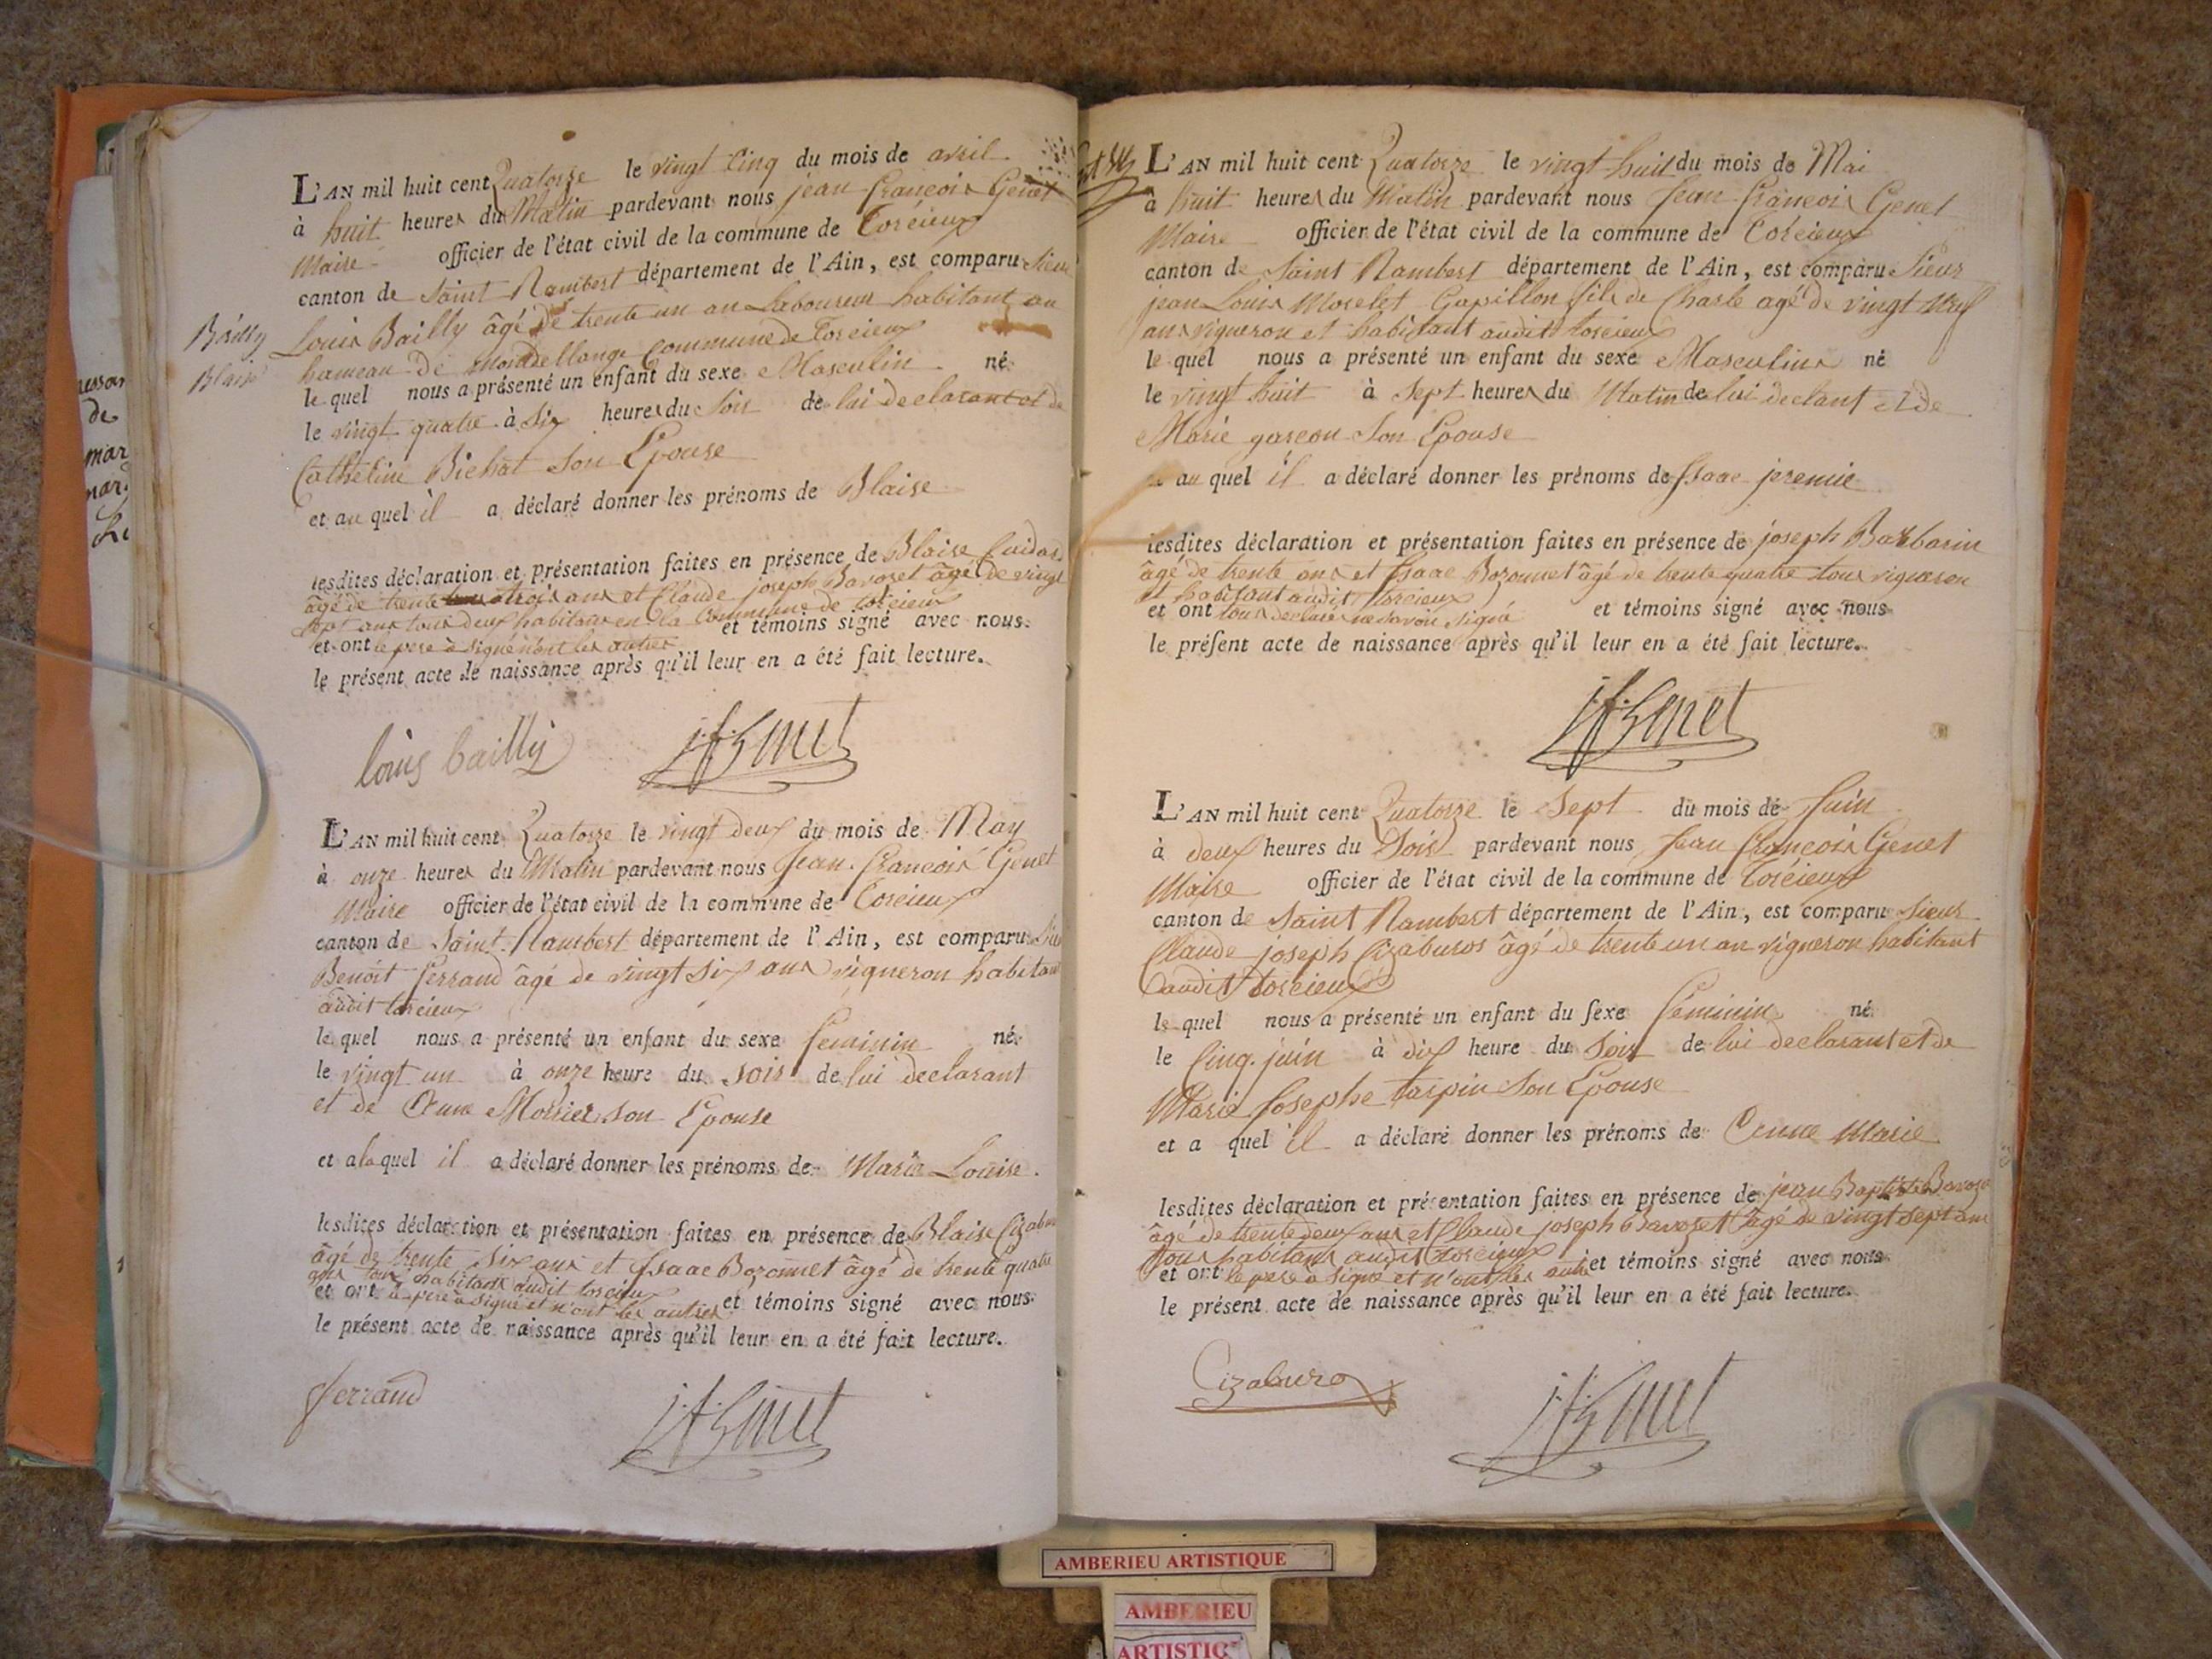 L'AN mil huit cent Quatorze le vingt Cinq du mois de avril
à huit heures du Matin pardevant nous jean françois Genet
Maire officier de l'état civil de la commune de Torcieux
canton de Saint Rambert département de l'Ain, est comparu Sieur
Louis Bailly âgé de trente un an Laboureur habitant au
Bailly
Blaise
hameau de Commune de Torcieux
le quel nous a présenté un enfant du sexe Masculin né
le vingt quatre à Six heures du Soir de lui declarant et de
Catherine Bichat Son Epouse
et au quel il a déclaré donner les prénoms de Blaise
lesdites déclaration et présentation faites en présence de Blaise
âgé de trente trois ans et Claude joseph Bavozet âgé de vingt
sept ans tous deux habitans en la Commune de torcieux
et ont le pere à signé non les autres et témoins signé avec nous
le présent acte de naissance après qu'il leur en a été fait lecture.
louis bailly
jf Genet
L'AN mil huit cent Quatorze le vingt deux du mois de May
à onze heures du Matin pardevant nous Jean françois Genet
Maire officier de l'état civil de la commune de Torcieux
canton de Saint Rambert département de l'Ain, est comparu Sieur
Benoit ferrand âgé de vingt six ans vigneron habitant
audit torcieux
le quel nous a présenté un enfant du sexe feminin né
le vingt un à onze heure du Soir de lui declarant
et de Anne son Epouse
et a la quel il a déclaré donner les prénoms de Maria Louise.
lesdites déclaration et présentation faites en présence de Blaise
âgé de trente six ans et Isaac Bozonnet âgé de trente quatre
ans tous habitans audit torcieux
et ont le pere à signé et n'ont les autres et témoins signé avec nous
le présent acte de naissance après qu'il leur en a été fait lecture.
ferrand
jf Genet
L'AN mil huit cent Quatorze le vingt huit du mois de Mai
à huit heures du Matin pardevant nous Jean françois Genet
Maire officier de l'état civil de la commune de Torcieux
canton de Saint Rambert département de l'Ain, est comparu Sieur
jean Louis Morelet Gapillon fils de Charle agé de vingt neuf
ans vigneron et habitant audit torcieux
le quel nous a présenté un enfant du sexe Masculin né
le vingt huit à Sept heures du Matin de lui declant et de
Marie garcon Son Epouse
au quel il a déclaré donner les prénoms de Isaac jeremie
lesdites déclaration et présentation faites en présence de joseph Barbarin
âgé de trente ans et Isaac Bozonnet âgé de trente quatre tous vigneron
et habitant audit torcieux
et ont tous declarés ne savoir signé et témoins signé avec nous
le présent acte de naissance après qu'il leur en a été fait lecture.
jf Genet
L'AN mil huit cent Quatorze le Sept du mois de Juin
à deux heures du Soir pardevant nous Jean françois Genet
Maire officier de l'état civil de la commune de Torcieux
canton de Saint Rambert département de l'Ain, est comparu Sieur
Claude joseph Cizaburos âgé de trente un an vigneron habitant
audit torcieux
le quel nous a présenté un enfant du sexe féminin né
le Cinq juin à dix heure du Soir de lui declarant et de
Marie Josephe tarpin Son Epouse
et a quel il a déclaré donner les prénoms de Anne Marie
lesdites déclaration et présentation faites en présence de jean Baptiste Bavozet
âgé de trente deux ans et Claude joseph Bavozet âgé de vingt sept ans
tous habitans audit torcieux
et ont le pere à signé et n'ont les autre et témoins signé avec nous
le présent acte de naissance après qu'il leur en a été fait lecture.
Cizaburo
jf Genet
AMBERIEU ARTISTIQUE
AMBERIEU
ARTISTIQ